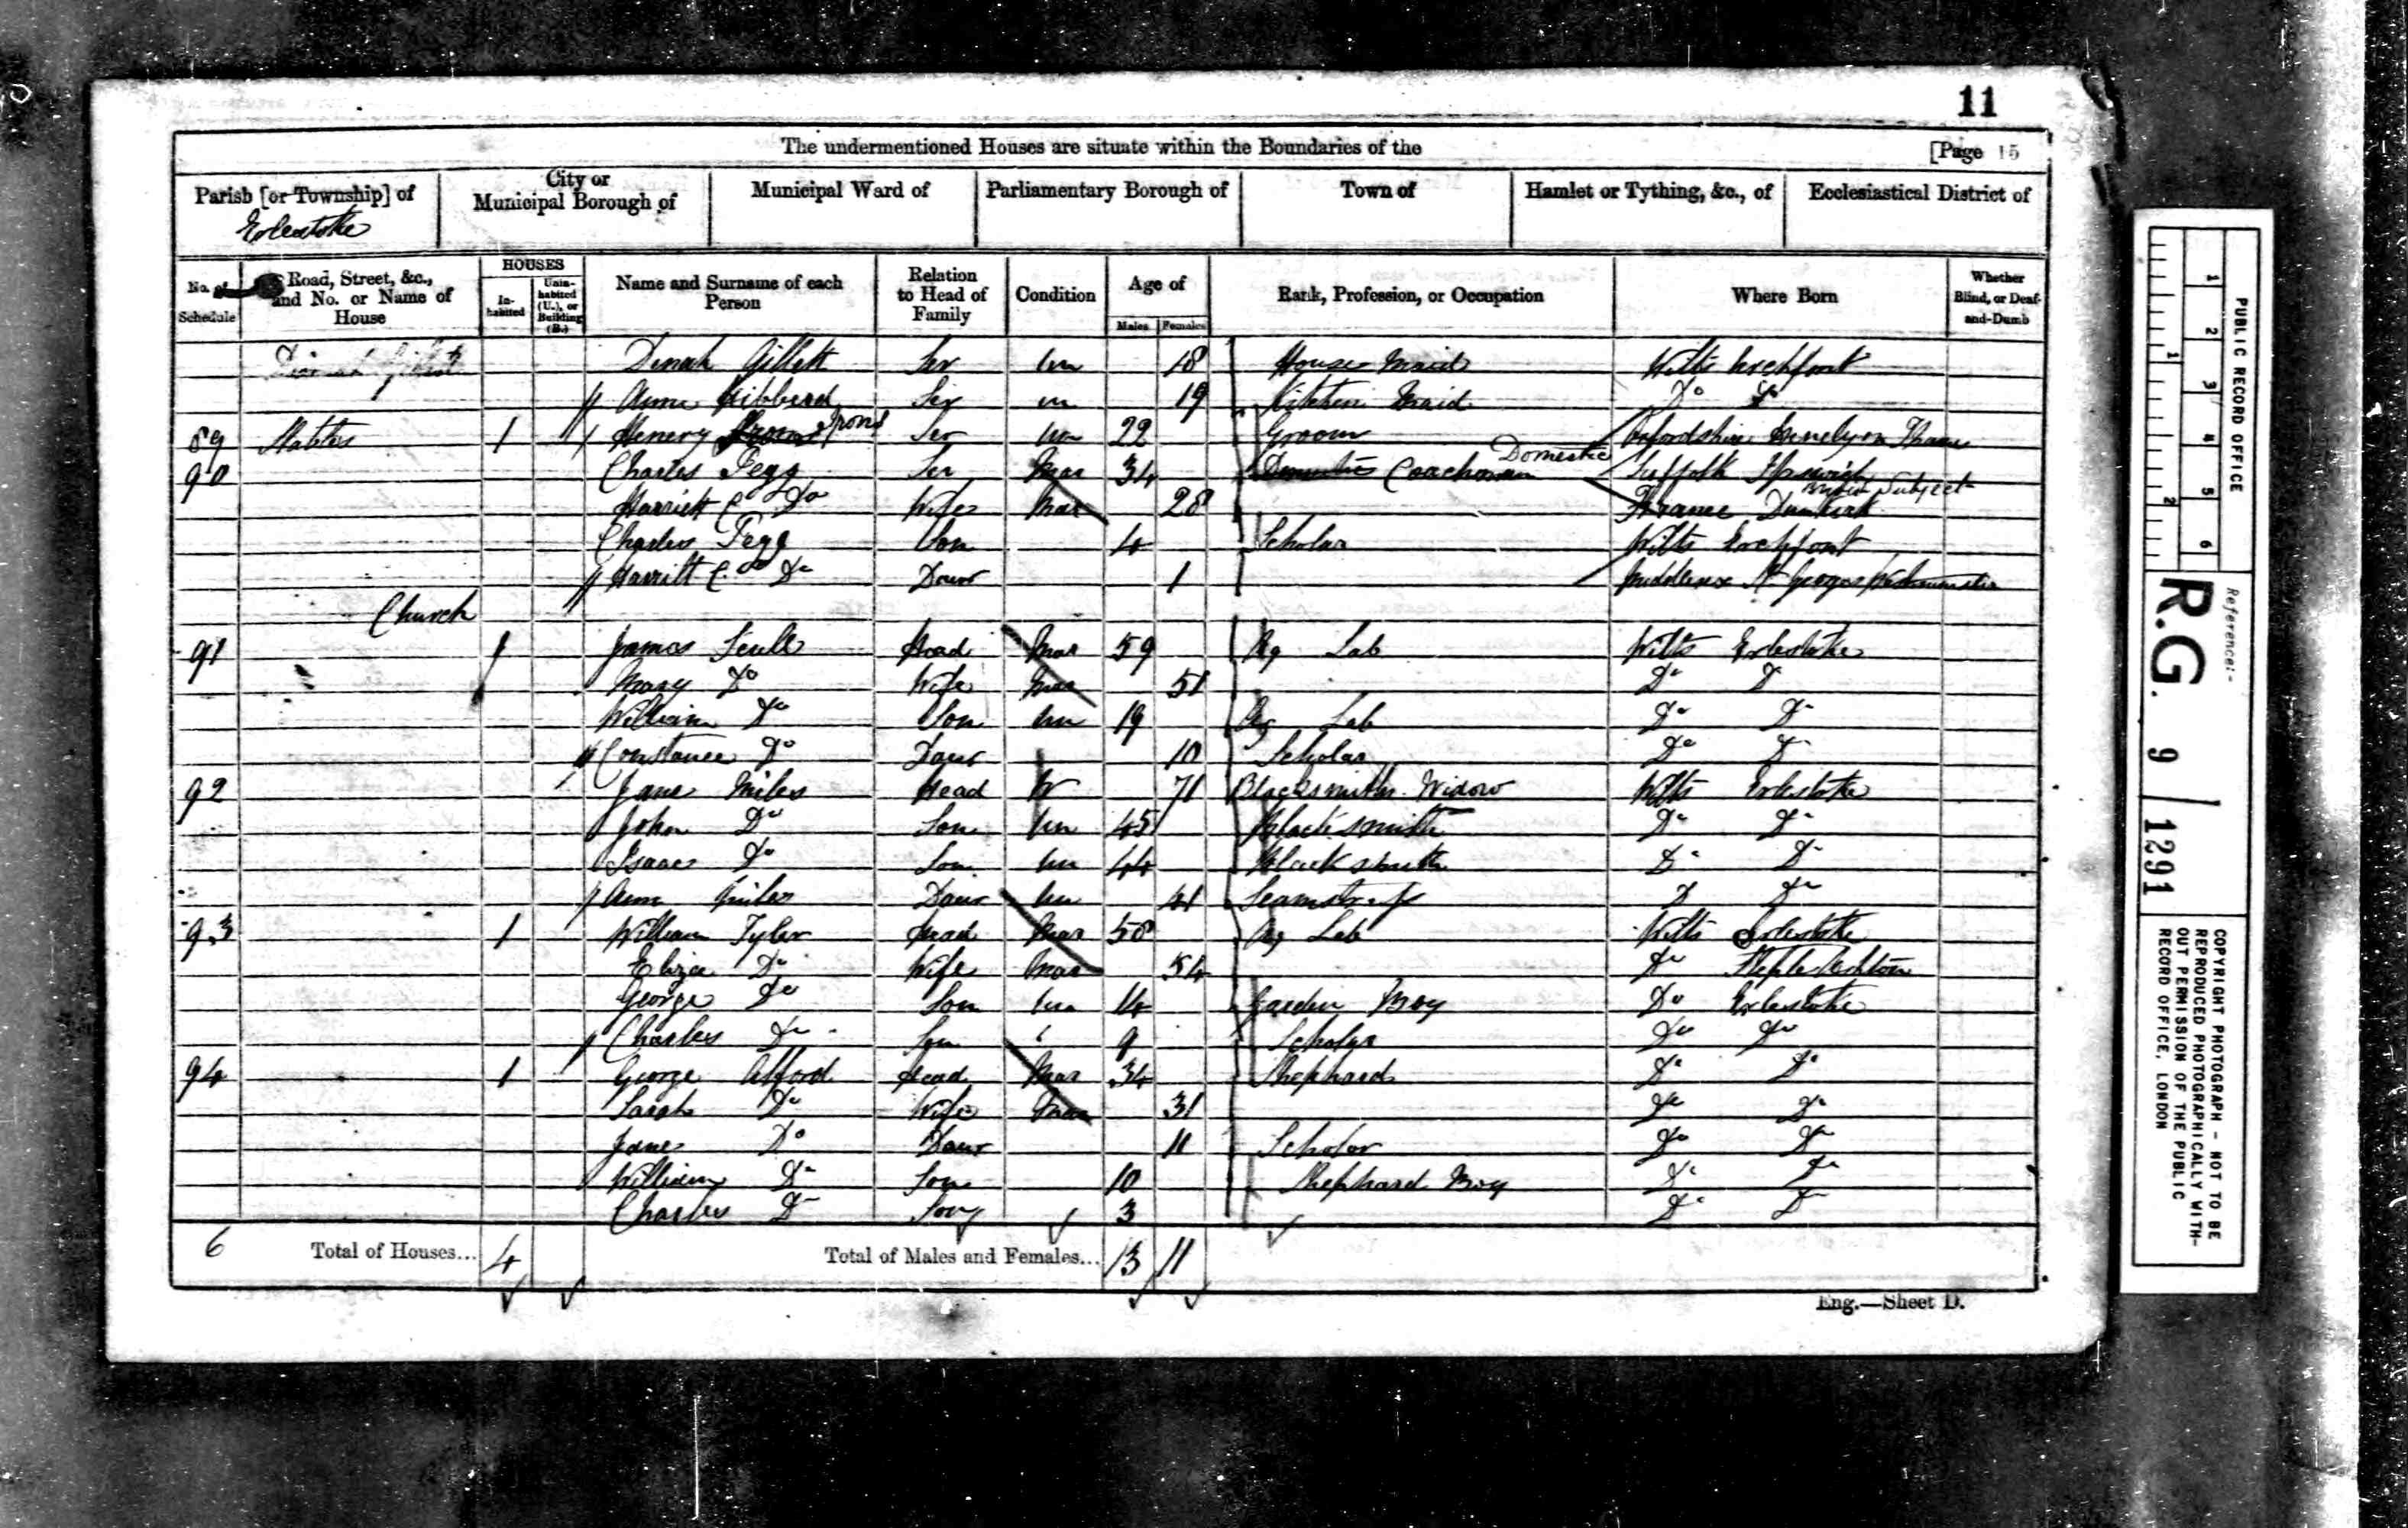 11
The undermentioned Houses are situate within the Boundaries of the [Page 15
Parish [or Township] of City or Municipal Borough of Municipal Ward of Parliamentary Borough of Town of Hamlet or Tything, &c., of Ecclesiastical District of
Erlestoke
No. of Schedule Road, Street, &c., and No. or Name of House HOUSES Inhabited Uninhabited (U.), or Building (B.) Name and Surname of each Person Relation to Head of Family Condition Age of Males Females Rank, Profession, or Occupation Where Born Whether Blind, or Deaf-and-Dumb
Dinah Gillett Ser Un 18 House Maid Wilts Erchfont
Ann Hibberd Ser Un 19 Kitchen Maid Do Do
89 Stables 1 Henery Irons Ser Un 22 Groom Oxfordshire Thame
90 Charles Pegg Ser Mar 34 Coachman Domestic Suffolk Ipswich
Harriett C Do Wife Mar 28 France Dunkirk British Subject
Charles Pegg Son 4 Scholar Wilts Erchfont
Harriett C. Do Daur 1 Middlesex St Georges Westminster
Church
91 1 James Scull Head Mar 59 Ag Lab Wilts Erlestoke
Mary Do Wife Mar 51 Do Do
William Do Son Un 19 Ag Lab Do Do
Constance Do Daur 10 Scholar Do Do
92 Jane Miles Head W 71 Blacksmiths Widow Wilts Erlestoke
John Do Son Un 45 Blacksmith Do Do
Isaac Do Son Un 44 Blacksmith Do Do
Ann Miles Daur Un 41 Seamstress Do Do
93 1 William Tyler Head Mar 58 Ag Lab Wilts Erlestoke
Eliza Do Wife Mar 54 Do Steple Ashton
George Do Son Un 14 Garden Boy Do Erlestoke
Charles Do Son 9 Scholar Do Do
94 1 George Alford Head Mar 34 Shephard Do Do
Sarah Do Wife Mar 31 Do Do
Jane Do Daur 11 Scholar Do Do
William Do Son 10 Shephard Boy Do Do
Charles Do Son 3 Do Do
6 Total of Houses... 4 Total of Males and Females... 13 11
Eng.—Sheet D.
PUBLIC RECORD OFFICE
1 2 3 4 5 6
1 2
Reference:-
R.G. 9 / 1291
COPYRIGHT PHOTOGRAPH - NOT TO BE
REPRODUCED PHOTOGRAPHICALLY WITH-
OUT PERMISSION OF THE PUBLIC
RECORD OFFICE, LONDON